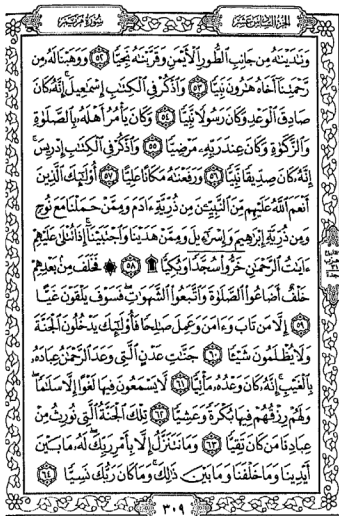 الجزء السادس عشر
سورة مريم
وَنَٰدَيْنَٰهُ مِن جَانِبِ ٱلطُّورِ ٱلْأَيْمَنِ وَقَرَّبْنَٰهُ نَجِيًّا ٥٢ وَوَهَبْنَا لَهُۥ مِن
رَّحْمَتِنَآ أَخَاهُ هَٰرُونَ نَبِيًّا ٥٣ وَٱذْكُرْ فِى ٱلْكِتَٰبِ إِسْمَٰعِيلَ إِنَّهُۥ كَانَ
صَادِقَ ٱلْوَعْدِ وَكَانَ رَسُولًا نَّبِيًّا ٥٤ وَكَانَ يَأْمُرُ أَهْلَهُۥ بِٱلصَّلَوٰةِ
وَٱلزَّكَوٰةِ وَكَانَ عِندَ رَبِّهِۦ مَرْضِيًّا ٥٥ وَٱذْكُرْ فِى ٱلْكِتَٰبِ إِدْرِيسَ
إِنَّهُۥ كَانَ صِدِّيقًا نَّبِيًّا ٥٦ وَرَفَعْنَٰهُ مَكَانًا عَلِيًّا ٥٧ أُو۟لَٰٓئِكَ ٱلَّذِينَ
أَنْعَمَ ٱللَّهُ عَلَيْهِم مِّنَ ٱلنَّبِيِّـۧنَ مِن ذُرِّيَّةِ ءَادَمَ وَمِمَّنْ حَمَلْنَا مَعَ نُوحٍ
وَمِن ذُرِّيَّةِ إِبْرَٰهِيمَ وَإِسْرَٰٓءِيلَ وَمِمَّنْ هَدَيْنَا وَٱجْتَبَيْنَآ إِذَا تُتْلَىٰ عَلَيْهِمْ
ءَايَٰتُ ٱلرَّحْمَٰنِ خَرُّوا۟ سُجَّدًا وَبُكِيًّا ۩ ٥٨ ۞ فَخَلَفَ مِنۢ بَعْدِهِمْ
خَلْفٌ أَضَاعُوا۟ ٱلصَّلَوٰةَ وَٱتَّبَعُوا۟ ٱلشَّهَوَٰتِ فَسَوْفَ يَلْقَوْنَ غَيًّا
٥٩ إِلَّا مَن تَابَ وَءَامَنَ وَعَمِلَ صَٰلِحًا فَأُو۟لَٰٓئِكَ يَدْخُلُونَ ٱلْجَنَّةَ
وَلَا يُظْلَمُونَ شَيْـًٔا ٦٠ جَنَّٰتِ عَدْنٍ ٱلَّتِى وَعَدَ ٱلرَّحْمَٰنُ عِبَادَهُۥ
بِٱلْغَيْبِ إِنَّهُۥ كَانَ وَعْدُهُۥ مَأْتِيًّا ٦١ لَّا يَسْمَعُونَ فِيهَا لَغْوًا إِلَّا سَلَٰمًا
وَلَهُمْ رِزْقُهُمْ فِيهَا بُكْرَةً وَعَشِيًّا ٦٢ تِلْكَ ٱلْجَنَّةُ ٱلَّتِى نُورِثُ مِنْ
عِبَادِنَا مَن كَانَ تَقِيًّا ٦٣ وَمَا نَتَنَزَّلُ إِلَّا بِأَمْرِ رَبِّكَ لَهُۥ مَا بَيْنَ
أَيْدِينَا وَمَا خَلْفَنَا وَمَا بَيْنَ ذَٰلِكَ وَمَا كَانَ رَبُّكَ نَسِيًّا ٦٤
٣٠٩